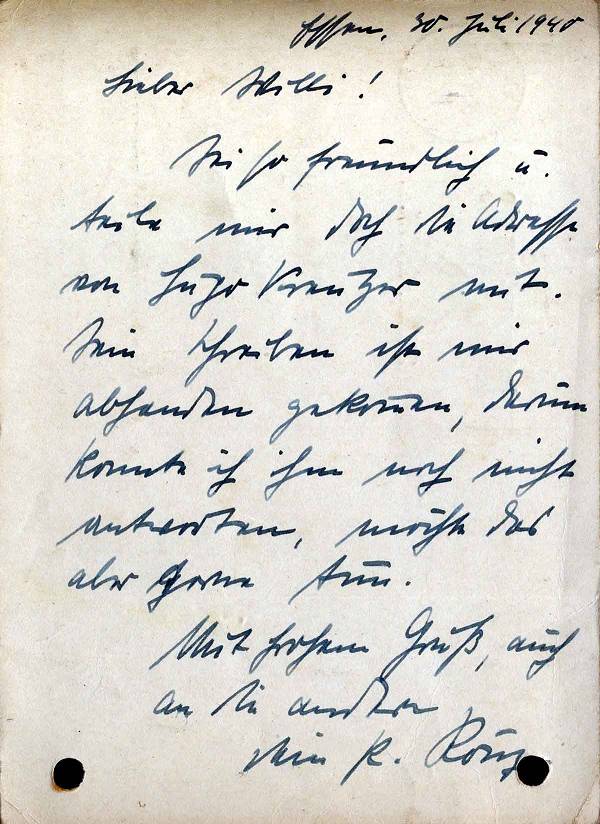 Essen, 30. Juli 1940
Lieber Willi!
Sei so freundlich u.
teile mir doch die Adresse
von Hugo Kreutzer mit.
Sein Schreiben ist mir
abhanden gekommen, darum
konnte ich ihm noch nicht
antworten, möchte das
aber gerne tun.
Mit frohem Gruß, auch
an die andern
Dein K.